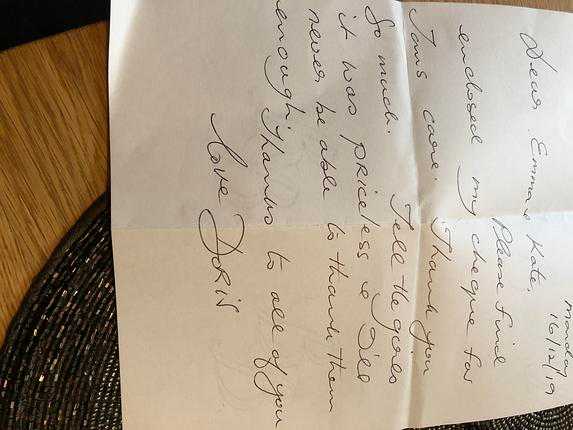 Monday
16/12/19
Dear Emma & Kate,
Please find
enclosed my cheque for
Toms care. Thank you
So much. Tell the girls
it was priceless & I'll
never be able to thank them
enough. Thanks to all of you
love Doris